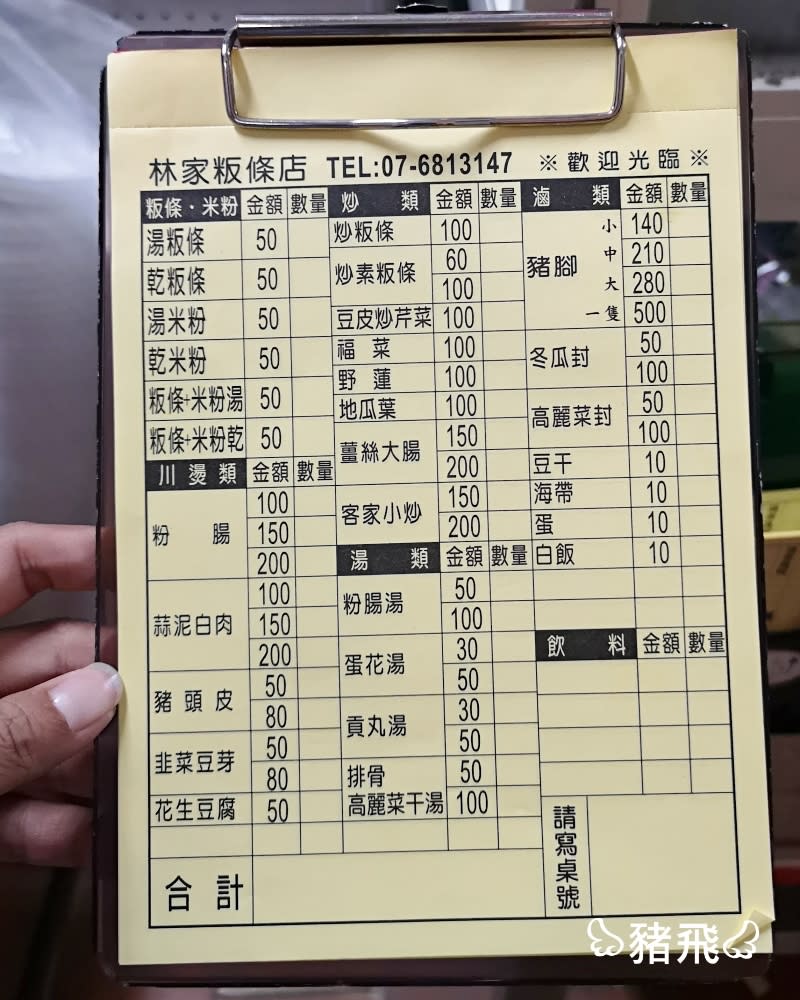 林家粄條店 TEL:07-6813147 ※歡迎光臨※
粄條·米粉 金額 數量
湯粄條 50
乾粄條 50
湯米粉 50
乾米粉 50
粄條+米粉湯 50
粄條+米粉乾 50
川燙類 金額 數量
粉腸 100
150
200
蒜泥白肉 100
150
200
豬頭皮 50
80
韭菜豆芽 50
80
花生豆腐 50
合計
炒類 金額 數量
炒粄條 100
炒素粄條 60
100
豆皮炒芹菜 100
福菜 100
野蓮 100
地瓜葉 100
薑絲大腸 150
200
客家小炒 150
200
湯類 金額 數量
粉腸湯 50
100
蛋花湯 30
50
貢丸湯 30
50
排骨 50
高麗菜干湯 100
滷類 金額 數量
豬腳 小 140
中 210
大 280
一隻 500
冬瓜封 50
100
高麗菜封 50
100
豆干 10
海帶 10
蛋 10
白飯 10
飲料 金額 數量
請寫桌號
豬飛